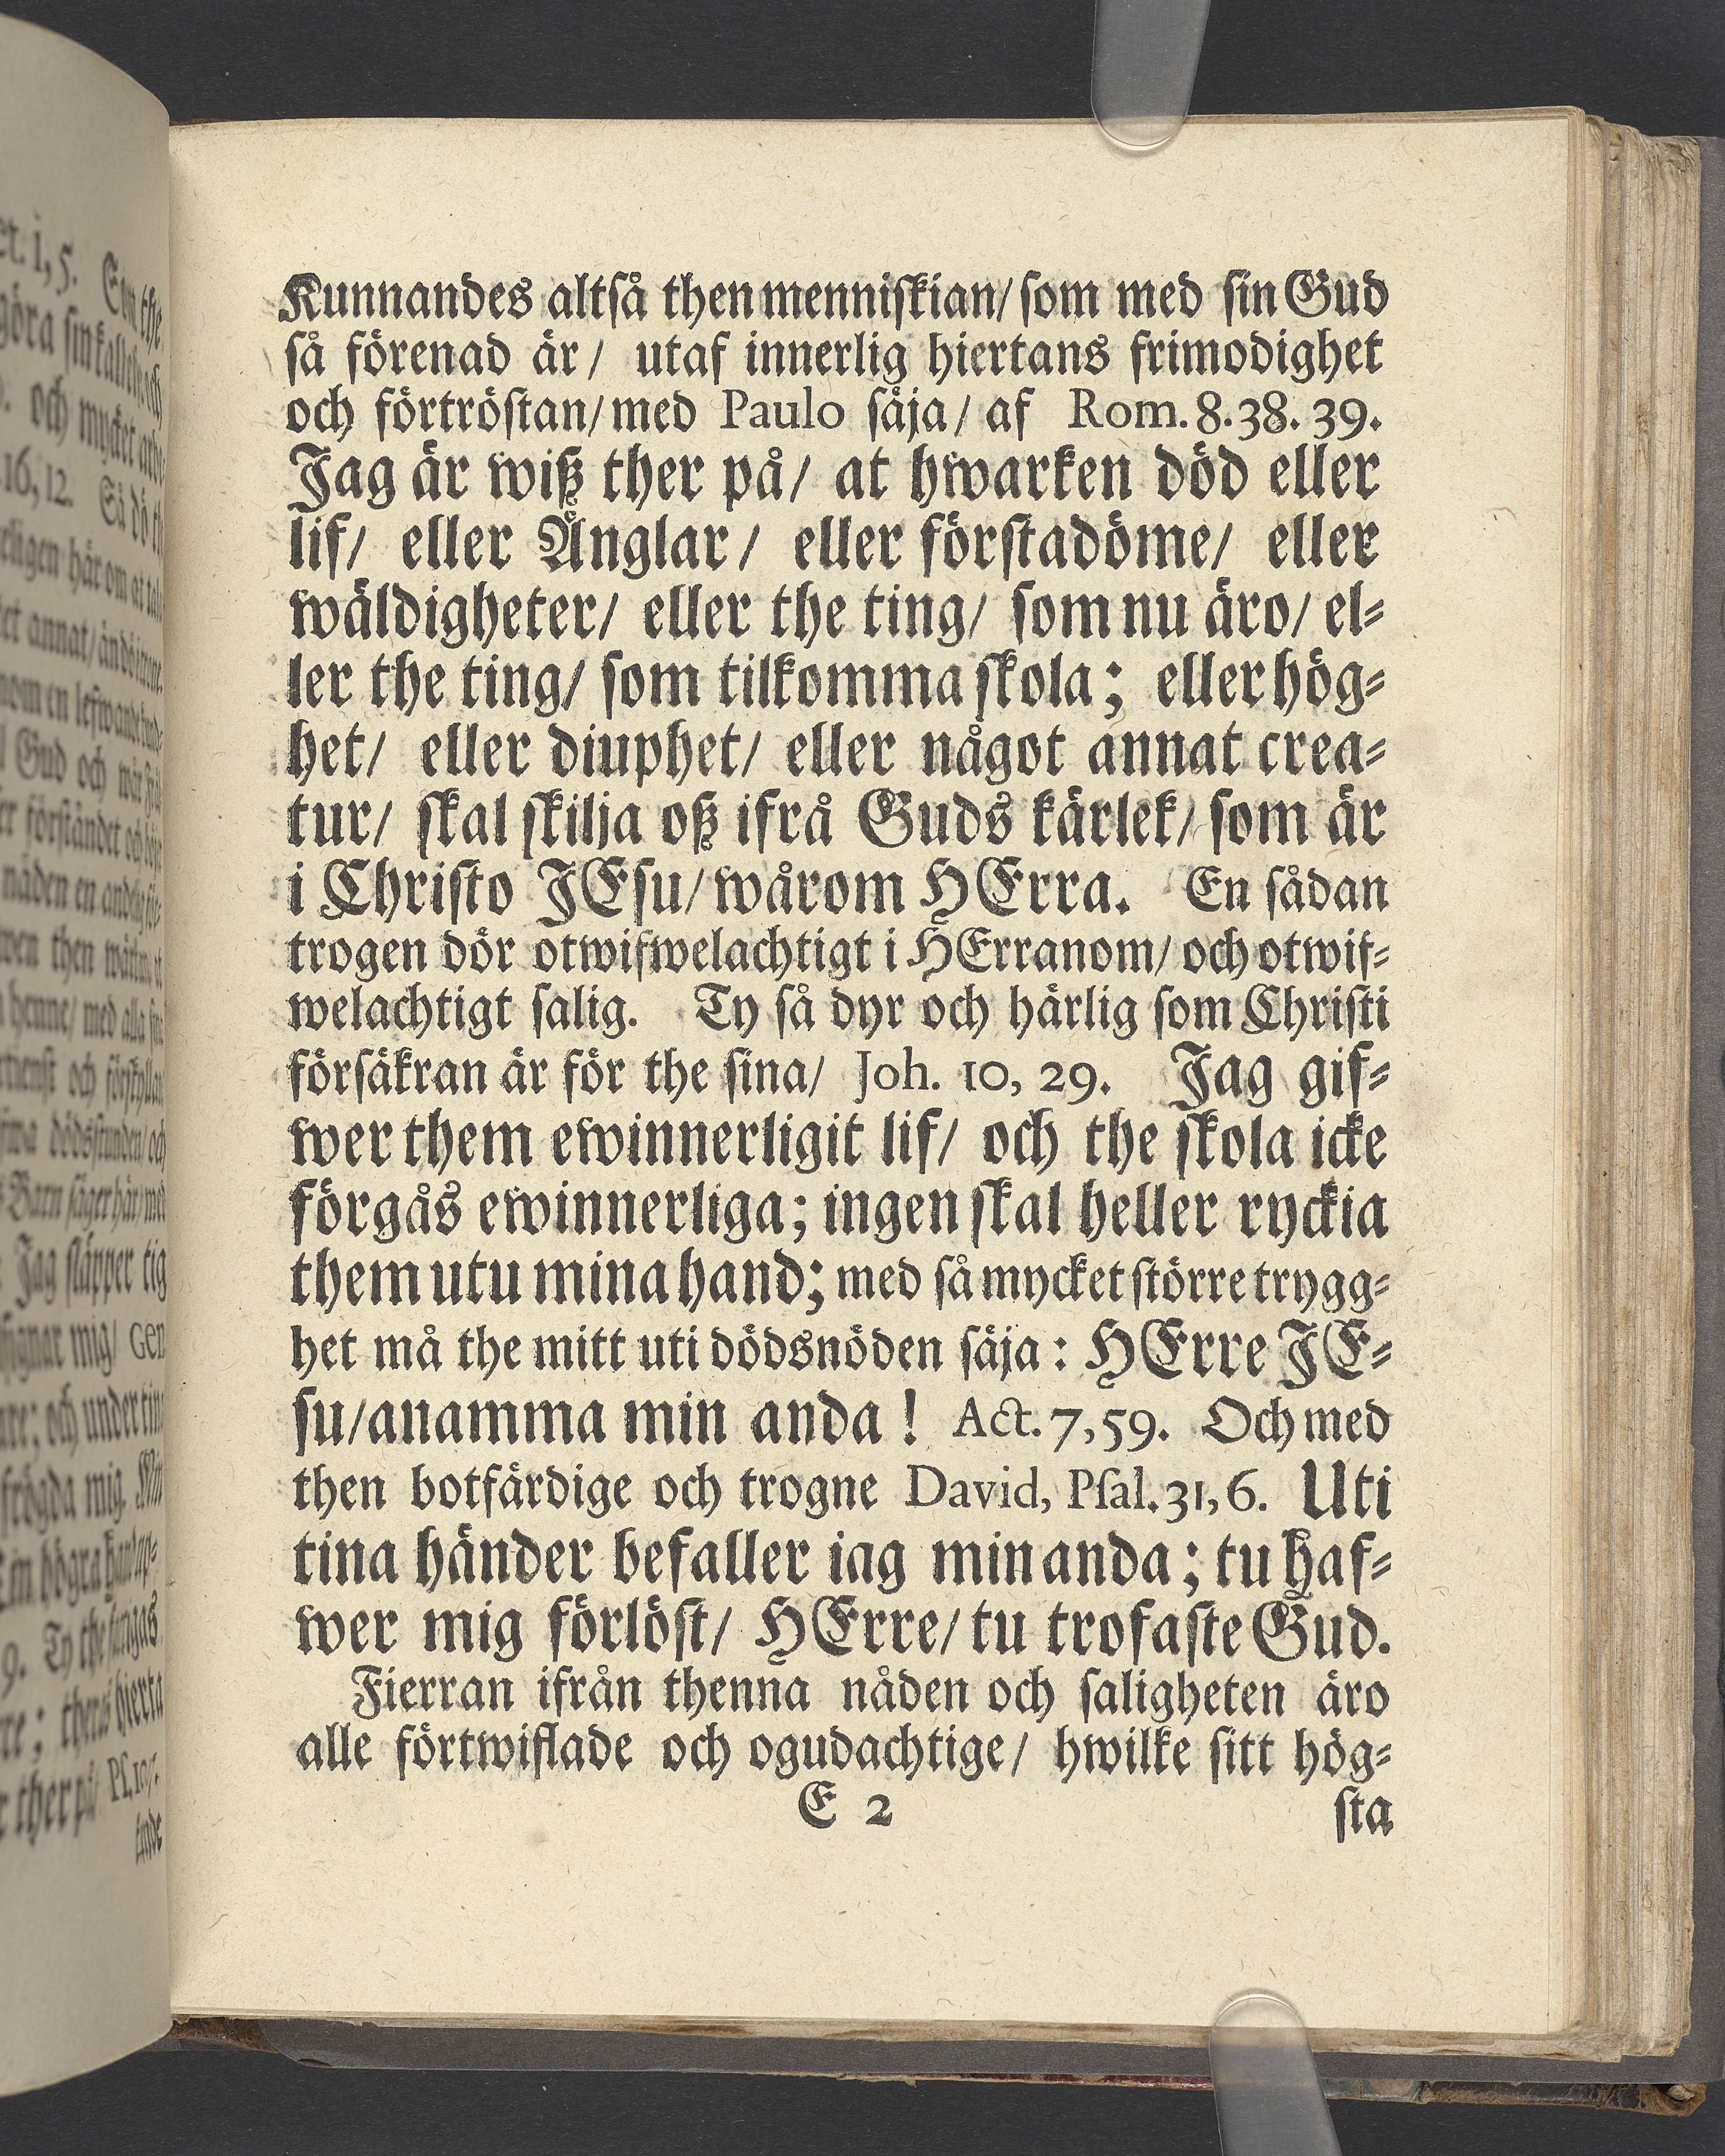 Kunnandes altſå then menniſkian/ ſom med ſin Gud
ſå förenad är/ utaf innerlig hiertans frimodighet
och förtröſtan/ med Paulo ſäja/ af Rom. 8. 38. 39.
Jag är wiß ther på/ at hwarken död eller
lif/ eller Änglar/ eller förſtadöme/ eller
wäldigheter/ eller the ting/ ſom nu äro/ el⸗
ler the ting/ ſom tilkomma ſkola; eller hög⸗
het/ eller diuphet/ eller något annat crea⸗
tur/ ſkal ſkilja oß ifrå Guds kärlek/ ſom är
i Chriſto JEſu/ wårom HErra. En ſådan
trogen dör otwifwelachtigt i HErranom/ och otwif⸗
welachtigt ſalig. Ty ſå dyr och härlig ſom Chriſti
förſäkran är för the ſina/ Joh. 10, 29. Jag gif⸗
wer them ewinnerligit lif/ och the ſkola icke
förgås ewinnerliga; ingen ſkal heller ryckia
them utu mina hand; med ſå mycket större trygg⸗
het må the mitt uti dödsnöden ſäja: HErre JE⸗
ſu/ anamma min anda! Act. 7, 59. Och med
then botfärdige och trogne David, Pſal. 31, 6. Uti
tina händer befaller iag min anda; tu haf⸗
wer mig förlöſt/ HErre/ tu trofaſte Gud.
Fierran ifrån thenna nåden och ſaligheten äro
alle förtwiflade och ogudachtige/ hwilke ſitt hög⸗
E 2 ſta